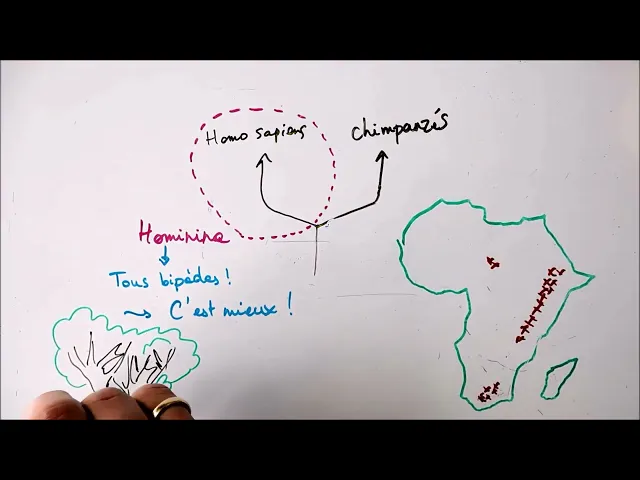 Homo sapiens
chimpanzés
Hominina
Tous bipèdes !
C'est mieux !